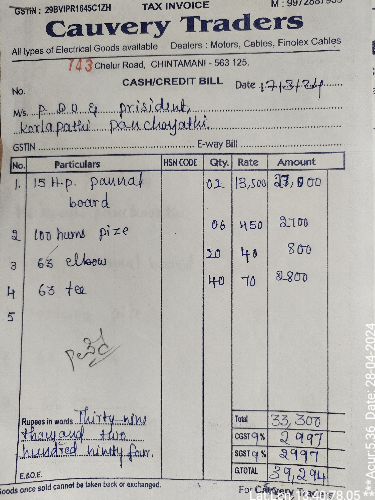 GSTIN : 29BVIPR1645C1ZH TAX INVOICE M : 9972887
Cauvery Traders
All types of Electrical Goods available Dealers : Motors, Cables, Finolex Cables
143 Chelur Road, CHINTAMANI - 563 125.
CASH/CREDIT BILL
No. Date 17/3/24
M/s. P.D.O & prisident,
Korlapathi panchayathi.
GSTIN E-way Bill
No. Particulars HSN CODE Qty. Rate Amount
1. 15 H.p. pannal 02 13,500 27,000
board
2 100 hums pize 06 450 2700
3 63 elbow 20 40 800
4 63 tee 40 70 2800
5
Rupees in words Thirty nine
thousand two
hundred ninty four.
Total 33,300
CGST 9% 2997
SGST 9% 2997
G.TOTAL 39,294
E.&O.E.
Goods once sold cannot be taken back or exchanged.
For Cauvery Traders
Date: 28-04-2024